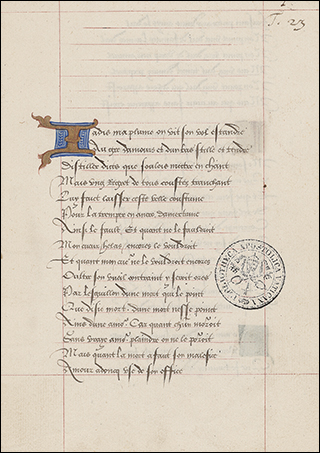 Jadis ma plume on vit son vol estandre
Au gre damours et dun bas stille et tendre
Distiller dictz que souloys mectre en chant
Mais ung regret de tous coustez tranchant
Luy faict laisser ceste doulce coustume
Pour la tremper en ancre damertume
Ainsi le fault. Et quant ne le fauldroit
Mon cueur helas, encores le vouldroit
Et quant mon cueur ne le vouldroit encores
Oultre son vueil contrainct y seroit ores
Par lesguillon dune mort qui le poinct
Que dis je mort. dune mort nesse poinct
Ains dune amour. Car quant chacun mouroit
Sans vraye amour plaindre on ne le poroit
Mais quant la mort a faict son malefice
Amour adoncq use de son office
BIBLIOTHECA APOSTOLICA VATICANA